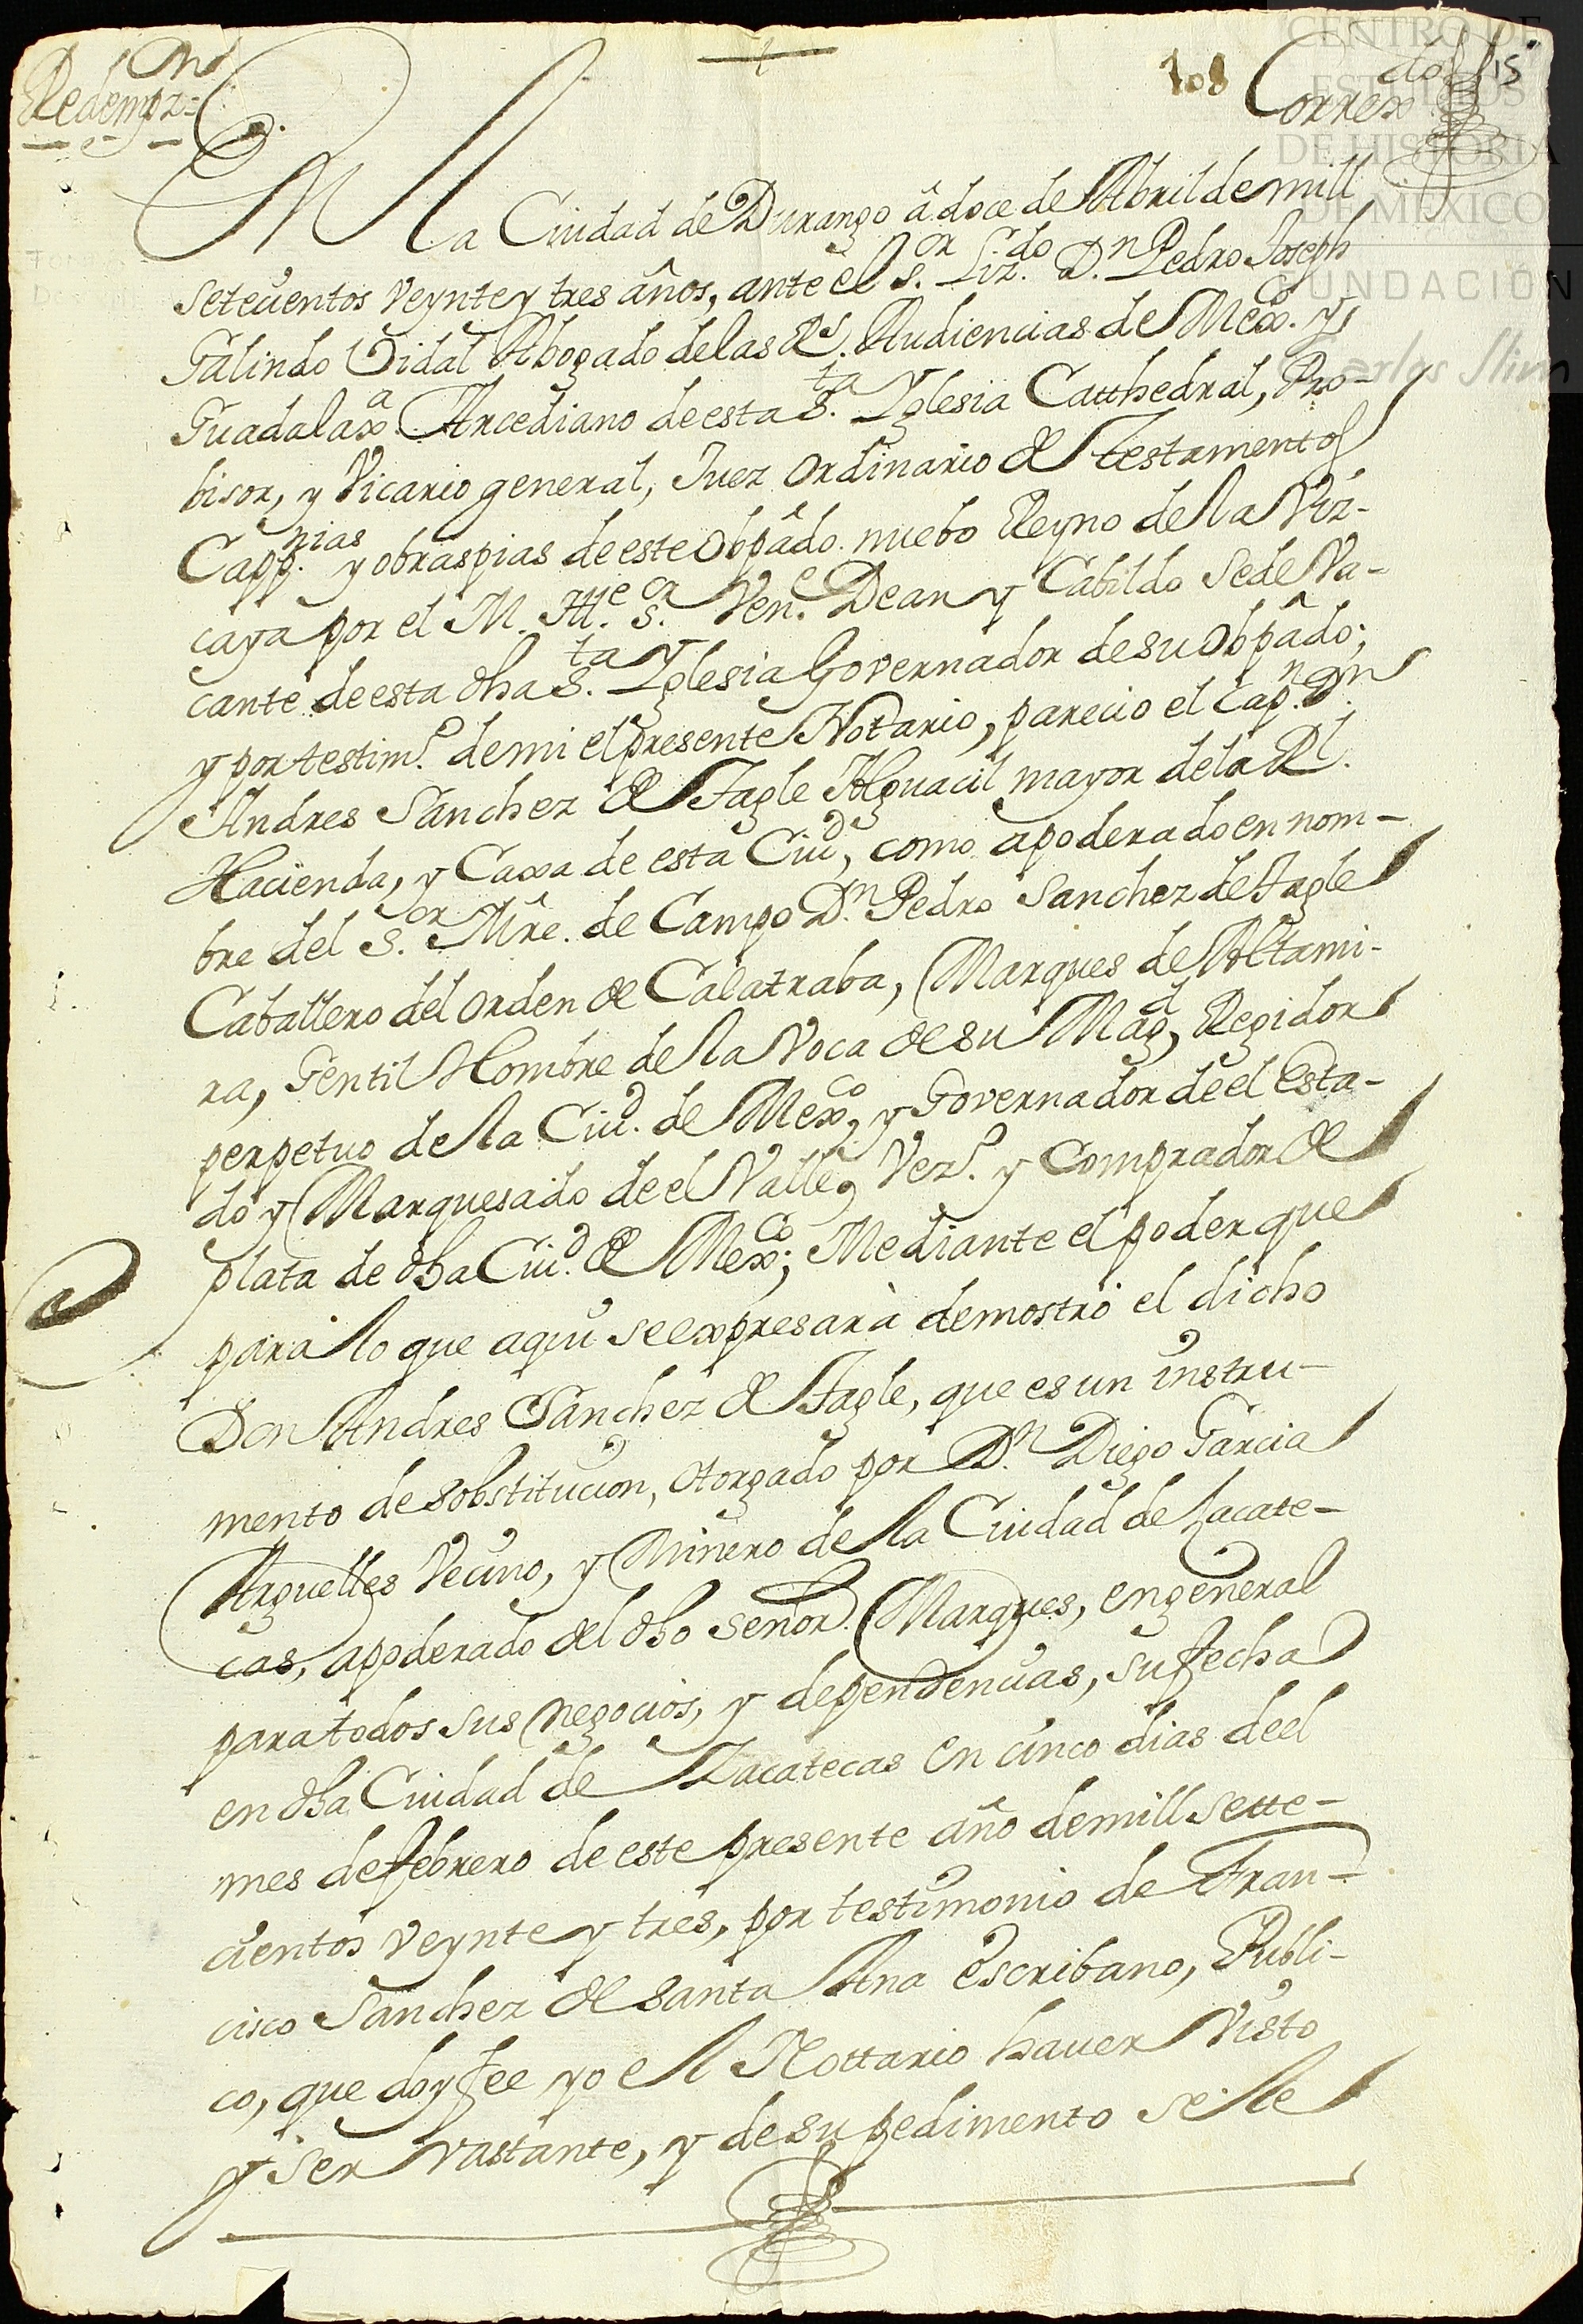 Redempz.on
108
Correx.do
15
CENTRO DE
ESTUDIOS
DE HISTORIA
DE MÉXICO
FUNDACIÓN
Carlos Slim
En la Ciudad de Durango â doce de Abril de mill
setecientos veynte y tres años, ante el s.or Liz.do D.n Pedro Joseph
Galindo Vidal Abogado de las R.s Audiencias de Mex.co y
Guadalax.a Arcediano de esta S.ta Yglesia Catthedral, Pro-
bisor, y Vicario general, Juez ordinario de testamentos
Capp.nias y obras pias de este Obpâdo. nuebo Reyno de la Viz-
caya por el M. Ill.e s.or Ven.e Dean y Cabildo Sede Va-
cante de esta dha S.ta Yglesia Governador de su Obpâdo;
y por testim.o de mi el presente Notario, parecio el Cap.n D.n
Andres Sanchez de Tagle Alguacil mayor de la R.l
Hacienda, y Caxa de esta Ciu.d, como apoderado en nom-
bre del s.or Mre. de Campo D.n Pedro Sanchez de Tagle
Caballero del orden de Calatraba, Marques de Altami-
ra, Gentil Hombre de la Voca de su Mag.d, Regidor
perpetuo de la Ciu.d de Mex.co, y Governador de el Esta-
do y Marquesado de el Valle, Vez.o y Comprador de
plata de dha Ciu.d de Mex.co; Mediante el poder que
para lo que aqui se expresarà demostrò el dicho
Don Andres Sanchez de Tagle, que es un instru-
mento de sobstitucion, otorgado por D.n Diego Garcia
Arguelles Vecino, y Minero de la Ciudad de Zacate-
cas, apoderado del dho señor Marques, en general
para todos sus negocios, y dependencias, su fecha
en dha Ciudad de Zacatecas en cinco dias de el
mes de febrero de este presente año de mill sette-
cientos veynte y tres, por testimonio de Fran-
cisco Sanchez de Santa Ana escribano, Publi-
co, que doy fee yo el Nottario haver visto
y ser vastante, y de su pedimento se le